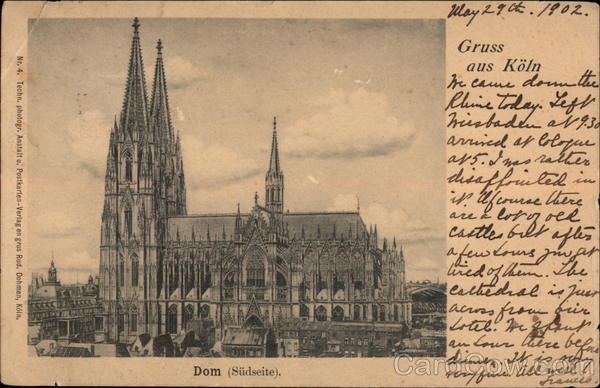 May 29th. 1902.
Gruss
aus Köln
We came down the
Rhine today. Left
Wiesbaden at 9.30
arrived at Cologne
at 5. I was rather
disappointed in
it. Of course there
are a lot of old
castles but after
a few hours you get
tired of them. The
cathedral is just
across from our
hotel. We spent
an hour there before
dinner. It is
very fine. All well
Francis
Nr. 4. Techn. photogr. Anstalt u. Postkarten-Verlag en gros Rud. Dohmen, Köln.
Dom (Südseite).
CardCow.com